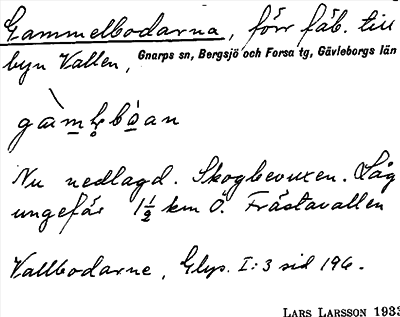 Gammelbodarna, förr fäb. till
byn Vallen, Gnarps sn, Bergsjö och Forsa tg, Gävleborgs län
Nu nedlagd. Skogbevuxen. Låg
ungefär 1½ km Ö. Frästavallen
Vallbodarne, Glys. I:3 sid 196.
LARS LARSSON 1933